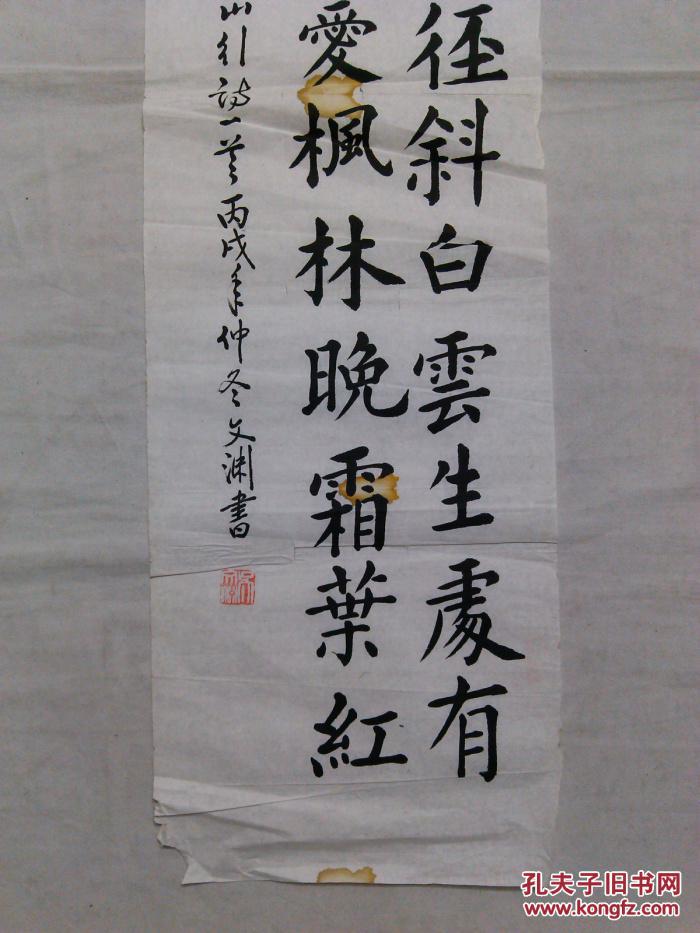 径斜白雲生處有
愛楓林晚霜葉紅
山行詩一首丙戌年仲冬文渊書
孔夫子旧书网
www.kongfz.com